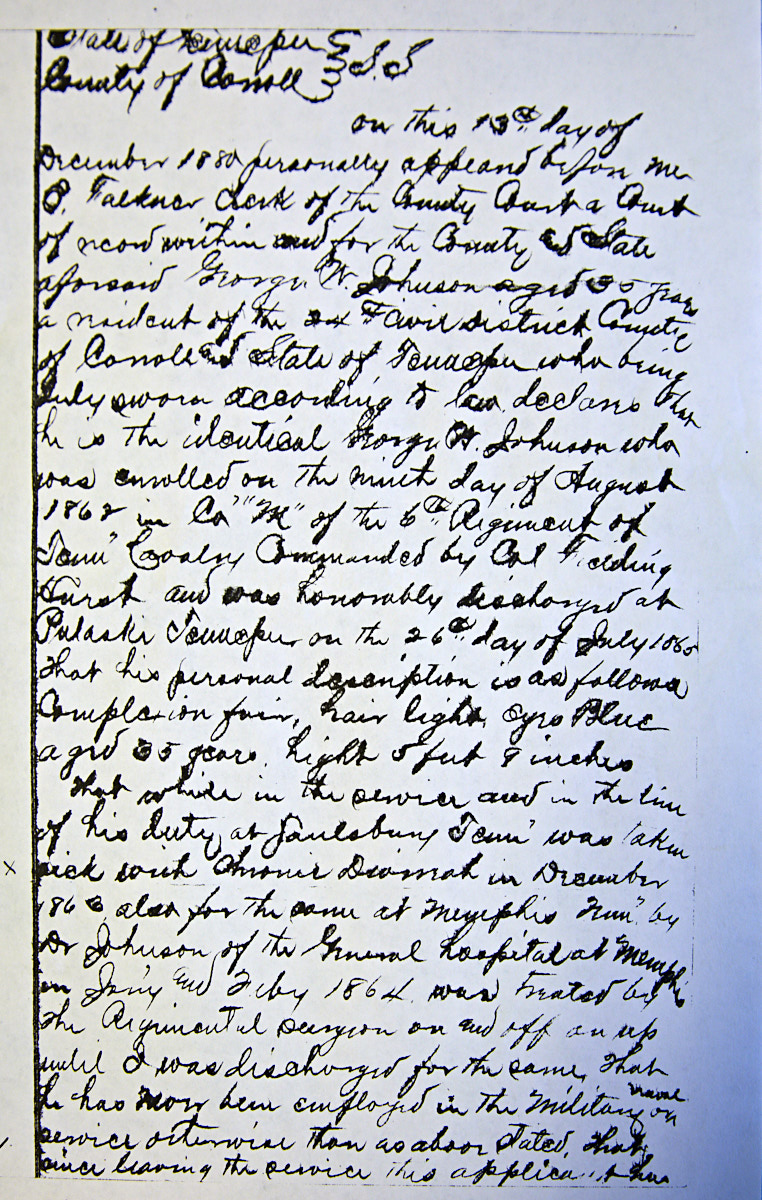 State of Tennessee } S.S
County of Carroll }
on this 13th day of
December 1880 personally appeared before me
P. Falkner clerk of the County Court a Court
of record within and for the County and State
aforsaid George W. Johnson aged 35 years
a resident of the 24th Civil district County
of Carroll and State of Tennessee who being
duly sworn according to law, declares that
he is the identical George W. Johnson who
was enrolled on the ninth day of August
1862 in Co "M" of the 6th Regiment of
Tenn" Cavalry Commanded by Col Fielding
Hurst and was honorably discharged at
Pulaski Tennessee on the 26th day of July 1865
that his personal description is as follows
Complexion fair, hair light, eyes Blue
aged 35 years, hight 5 feet 9 inches
that while in the service and in the line
of his duty at Saulsbury Tenn" was taken
x sick with Chronic in December
186 also for the same at Memphis Tenn" by
Dr Johnson of the General hospital at Memphis
in Jan'y and Feby 1864 was treated by
the Regimental surgeon on and off on up
until I was discharged for the same, that
he has been employed in the Military or naval
service otherwise than as above stated, that
since leaving the service this applicant has